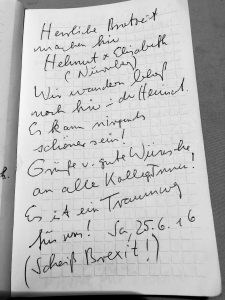 Herrliche Brotzeit
machen hier
Helmut + Elisabeth
(Nürnberg)
Wir wandern
noch hier in der Heimat.
Es kann nirgends
schöner sein!
Grüße u. gute Wünsche
an alle KollegInnen!
Es ist ein Traumweg
für uns! Sa, 25.6.16
(Scheiß Brexit!)